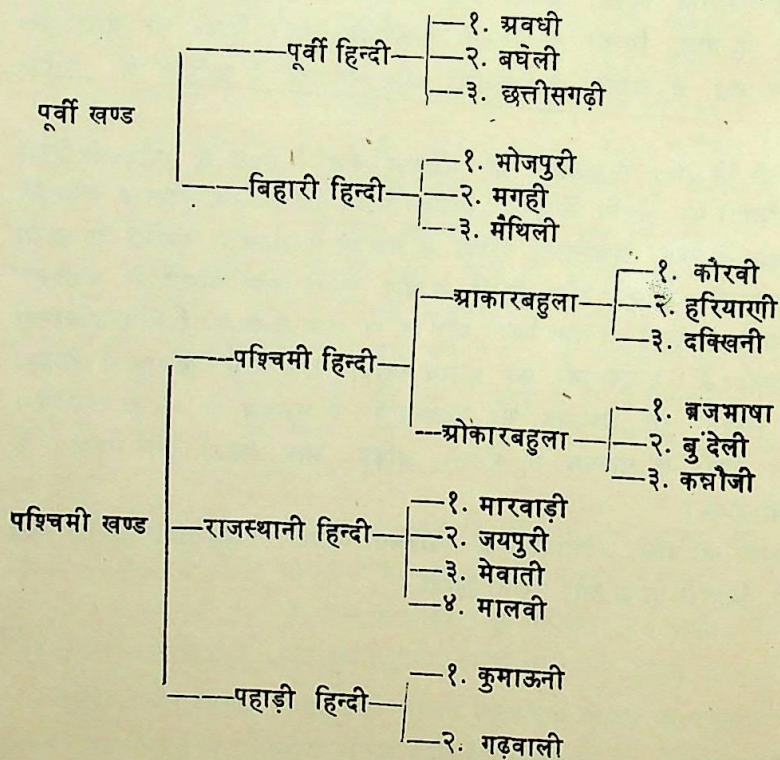 पूर्वी खण्ड
पूर्वी हिन्दी
१. अवधी
२. बघेली
३. छत्तीसगढ़ी
बिहारी हिन्दी
१. भोजपुरी
२. मगही
३. मैथिली
पश्चिमी खण्ड
पश्चिमी हिन्दी
आकारबहुला
१. कौरवी
२. हरियाणी
३. दक्खिनी
ओकारबहुला
१. ब्रजभाषा
२. बुंदेली
३. कन्नौजी
राजस्थानी हिन्दी
१. मारवाड़ी
२. जयपुरी
३. मेवाती
४. मालवी
पहाड़ी हिन्दी
१. कुमाऊनी
२. गढ़वाली